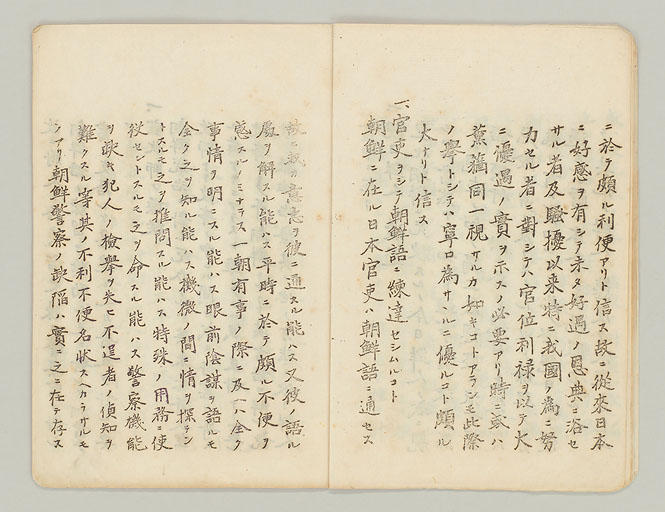 ニ於テ頗ル利便アリト信ス故ニ從來日本
ニ好感ヲ有シテ未タ好遇ノ恩典ニ浴セ
サル者及騷擾以來特ニ我國ノ為ニ努
力セル者ニ對シテハ官位利禄ヲ以テ大
ニ優遇ノ實ヲ示スノ必要アリ時ニ或ハ
薫蕕同一視サルカ如キコトアランモ此際
ノ擧トシテハ寧ロ為サヽルニ優ルコト頗ル
大ナリト信ス
一、官吏ヲシテ朝鮮語ニ練達セシムルコト
朝鮮ニ在ル日本官吏ハ朝鮮語ニ通セス
故ニ我カ意志ヲ彼ニ通スル能ハス又彼ノ語ル
處ヲ解スル能ハス平時ニ於テ頗ル不便ヲ
感スルノミナラス一朝有事ノ際ニ及ハ全ク
事情ヲ明ニスル能ハス眼前陰謀ヲ語ルモ
全ク之ヲ知ル能ハス機微ノ間ニ情ヲ探ラン
トスルモ之ヲ推問スル能ハス特殊ノ用務ニ使
役セントスルモ之ヲ命スル能ハス警察機能
ヲ缺キ犯人ノ檢擧ヲ失ヒ不逞者ノ偵知ヲ
難クスル等其ノ不利不便名状スヘカラサルモ
ノアリ朝鮮警察ノ缺陷ハ實ニ之ニ在テ存ス